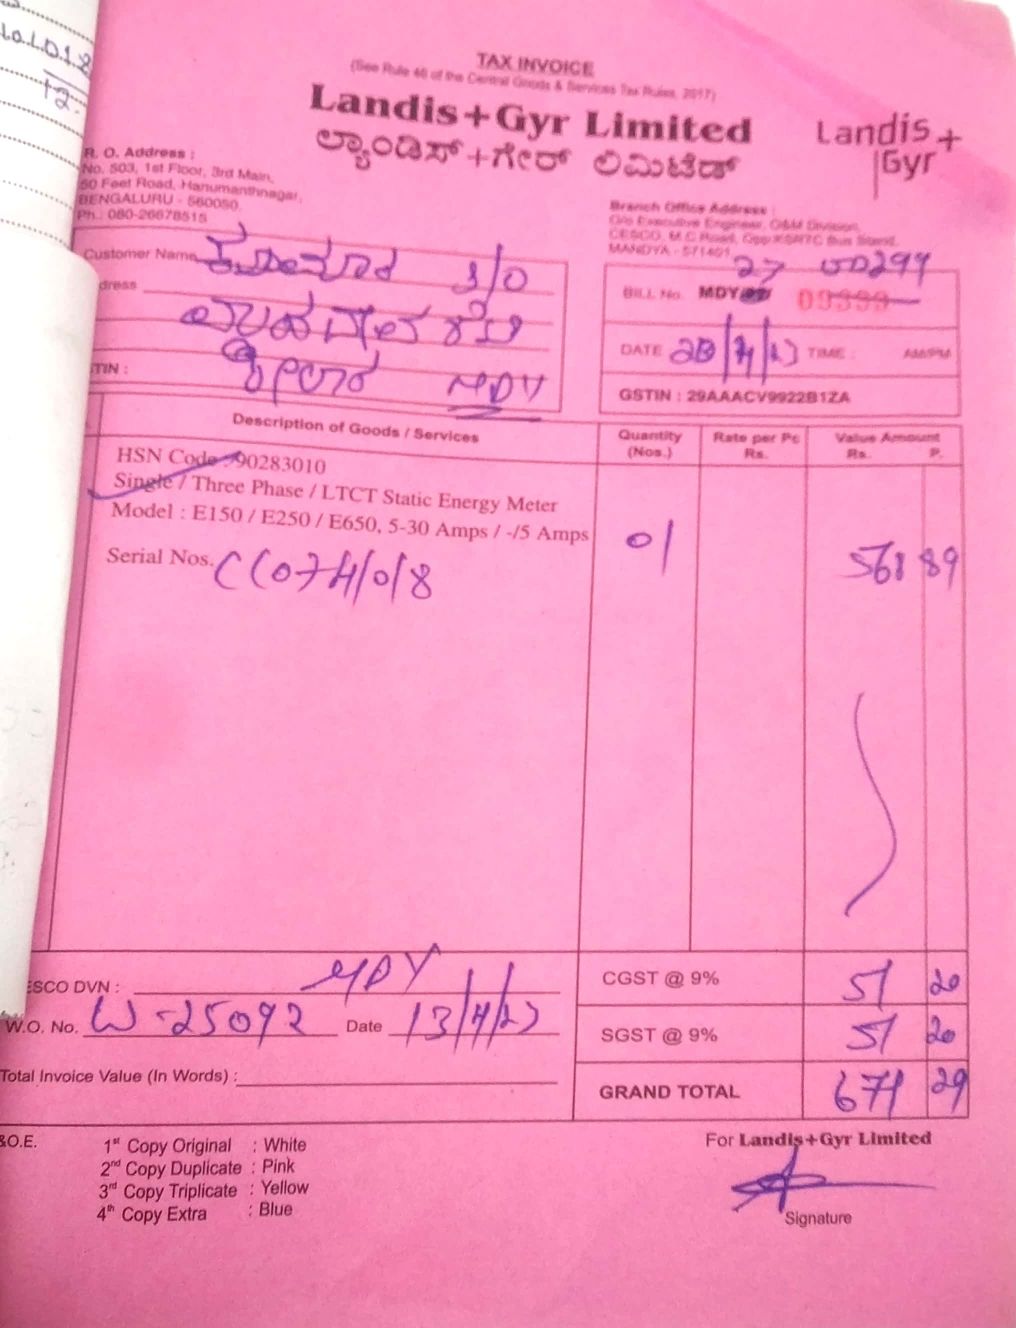 TAX INVOICE
(See Rule 46 of the Central Goods & Services Tax Rules, 2017)
Landis+Gyr Limited
ಲ್ಯಾಂಡಿಸ್+ಗೇರ್ ಲಿಮಿಟೆಡ್
Landis+
Gyr
R. O. Address :
No. 503, 1st Floor, 3rd Main,
50 Feet Road, Hanumanthnagar,
BENGALURU - 560050.
Ph.: 080-26678515
Branch Office Address :
O/o Executive Engineer, O&M Division,
CESCO, M.C Road, Opp KSRTC Bus Stand,
MANDYA - 571401
Customer Name S/O
dress
TIN : MDY
27 00299
BILL No. MDY 09399
DATE 20/4/23 TIME : AM/PM
GSTIN : 29AAACV9922B1ZA
Description of Goods / Services Quantity (Nos.) Rate per Pc Rs. Value Amount Rs. P.
HSN Code : 90283010
Single / Three Phase / LTCT Static Energy Meter
Model : E150 / E250 / E650, 5-30 Amps / -/5 Amps 01 568 89
Serial Nos.
ESCO DVN : MDY
CGST @ 9% 51 20
W.O. No. W-25092 Date 13/4/23
SGST @ 9% 51 20
Total Invoice Value (In Words) :
GRAND TOTAL 671 29
&O.E.
1st Copy Original : White
2nd Copy Duplicate : Pink
3rd Copy Triplicate : Yellow
4th Copy Extra : Blue
For Landis+Gyr Limited
Signature